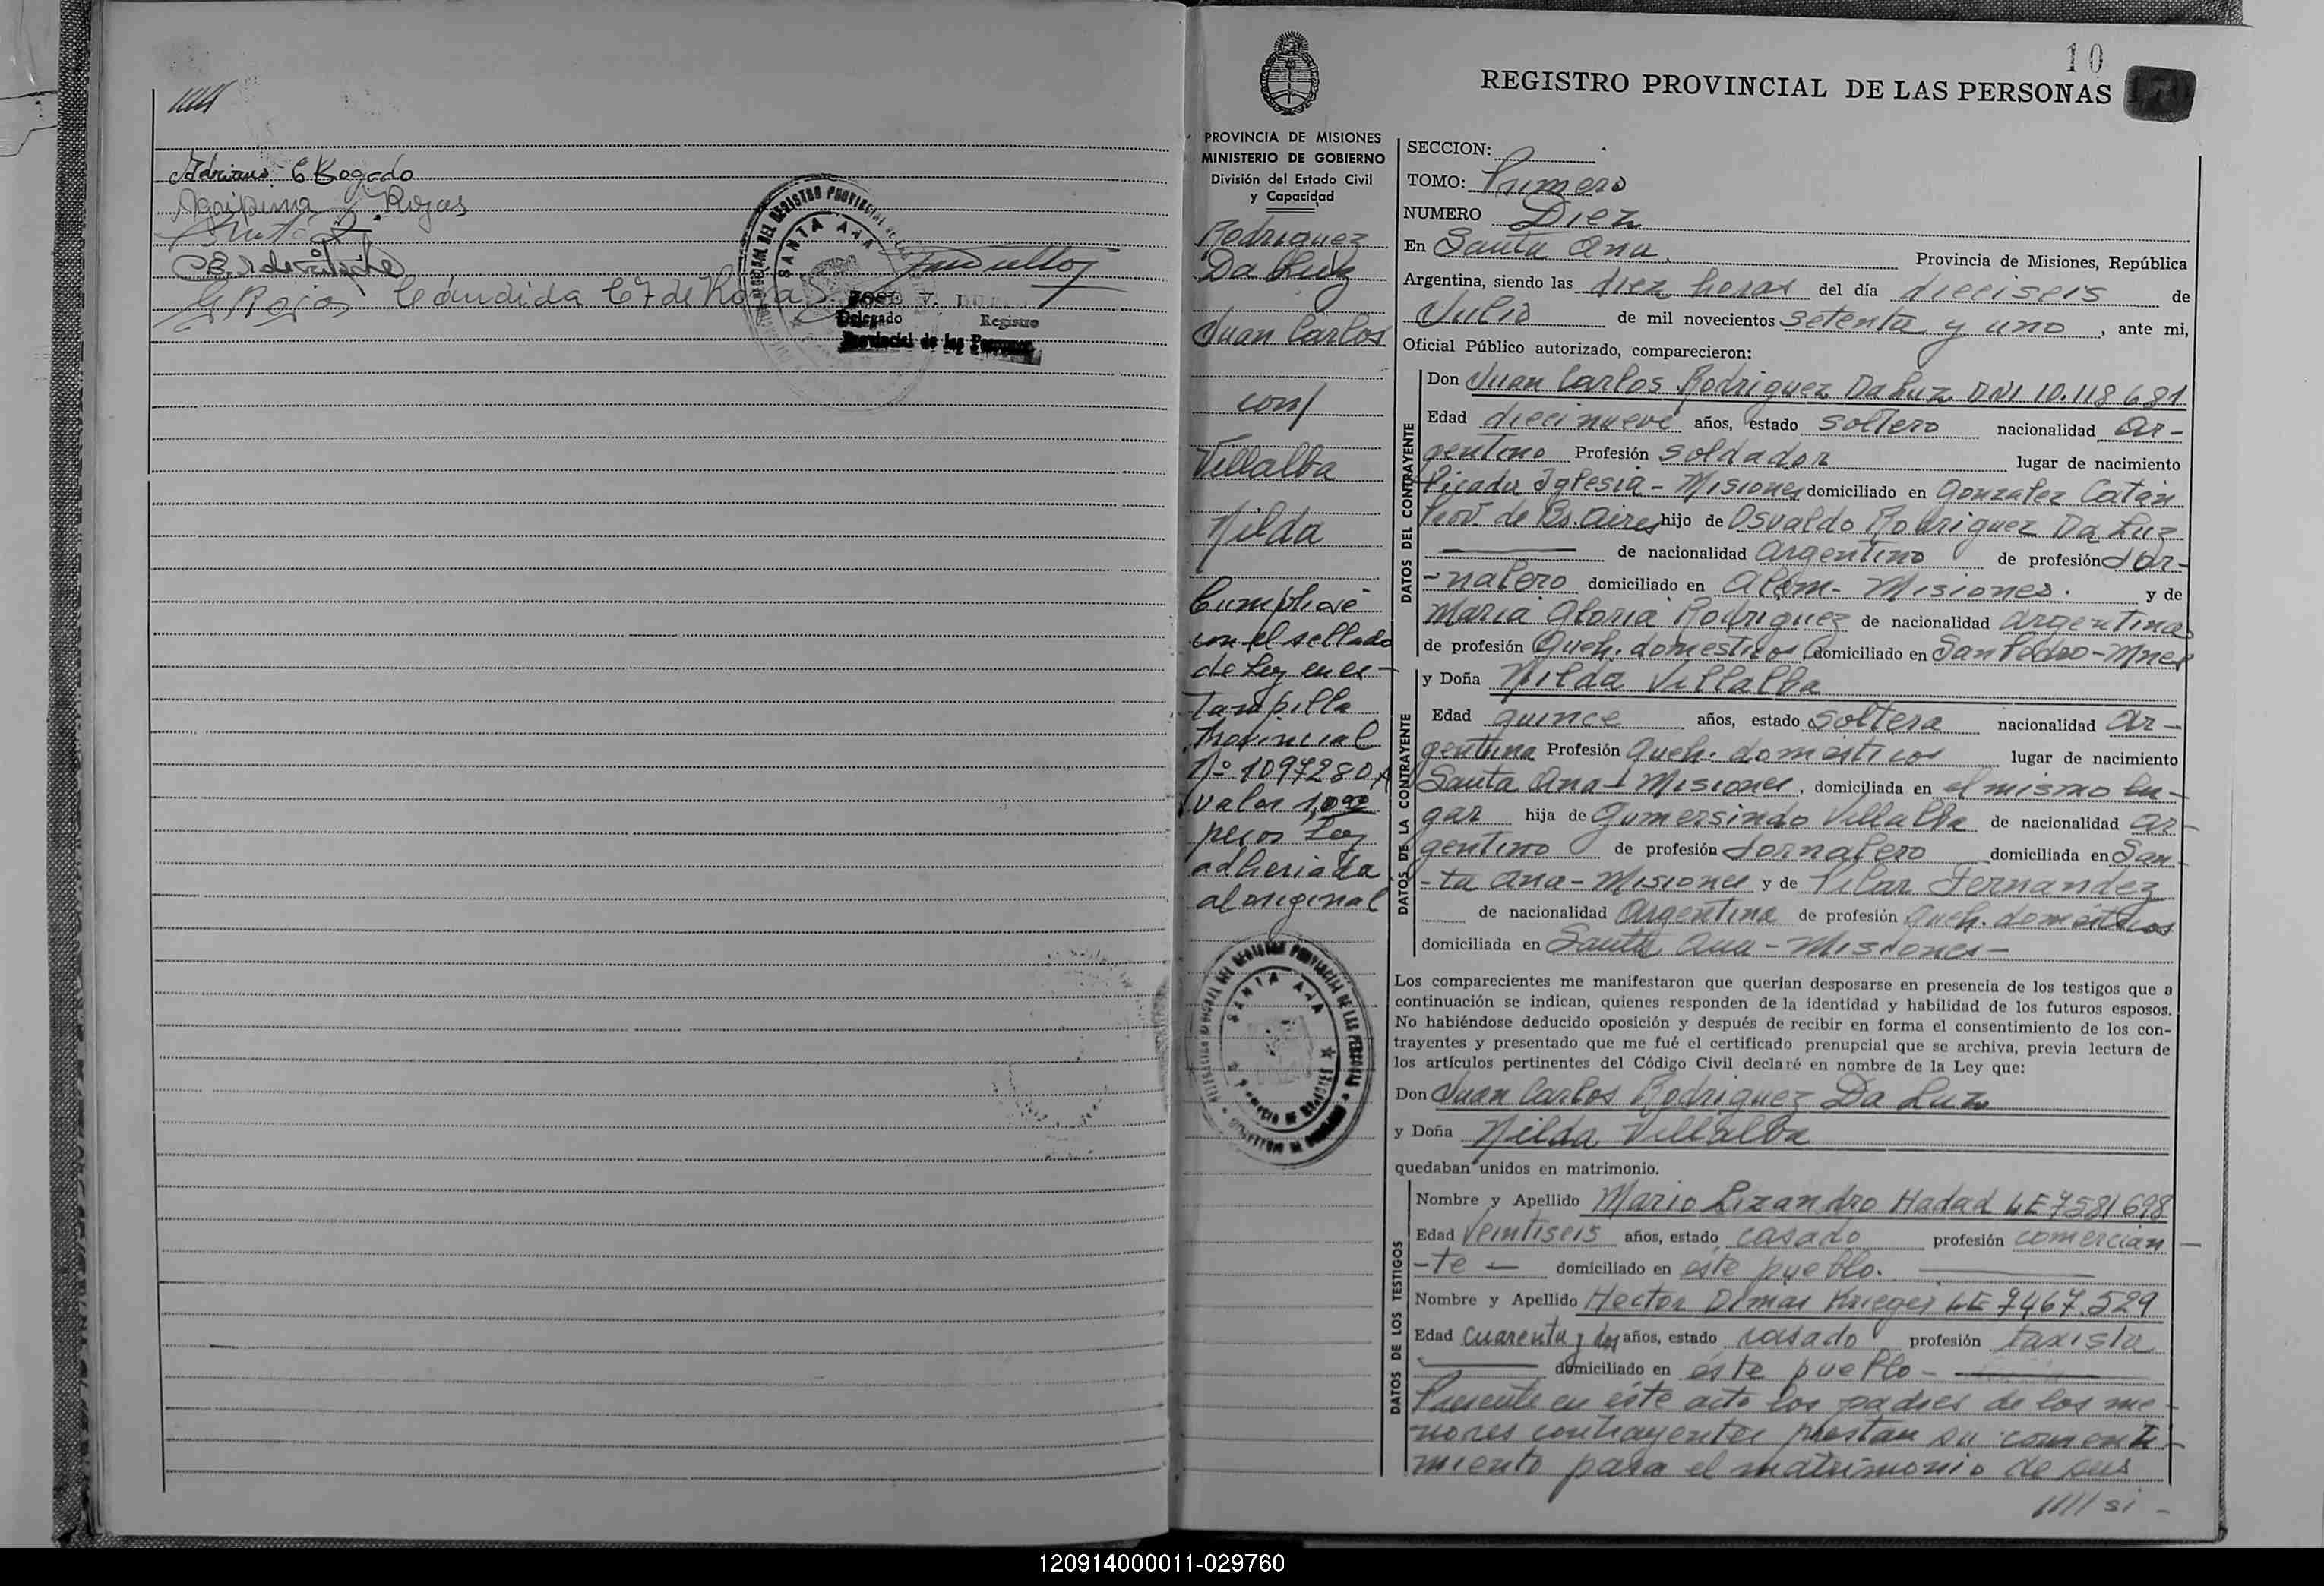 Adriano C Bogado
Agripina Rojas
G Rojas Cándida C F de Rojas
SANTA ANA
JOSE V.
Delegado Registro
Provincial de las Personas
10
REGISTRO PROVINCIAL DE LAS PERSONAS
PROVINCIA DE MISIONES
MINISTERIO DE GOBIERNO
División del Estado Civil
y Capacidad
Rodriguez
Da Luz
Juan Carlos
con/
Villalba
Nilda
Cumpliose
con el sellado
de Ley en es-
tampilla
Provincial
Nº 1097280 A
valor 1,000
pesos Ley
adherida
al original
SANTA ANA
SECCION:
TOMO: Primero
NUMERO Diez
En Santa Ana. Provincia de Misiones, República
Argentina, siendo las diez horas del día dieciseis de
Julio de mil novecientos setenta y uno, ante mi,
Oficial Público autorizado, comparecieron:
DATOS DEL CONTRAYENTE
Don Juan Carlos Rodriguez Da Luz DNI 10.118.681
Edad diecinueve años, estado soltero nacionalidad Ar-
gentino Profesión soldador lugar de nacimiento
Picada Iglesia - Misiones domiciliado en Gonzalez Catán
Prov. de Bs. Aires hijo de Osvaldo Rodriguez Da Luz
de nacionalidad Argentino de profesión Jor-
-nalero domiciliado en Alem - Misiones. y de
Maria Gloria Rodriguez de nacionalidad Argentina
de profesión Queh. domesticos domiciliado en San Pedro - Mnes
DATOS DE LA CONTRAYENTE
y Doña Nilda Villalba
Edad quince años, estado soltera nacionalidad Ar-
gentina Profesión Queh. domésticos lugar de nacimiento
Santa Ana - Misiones, domiciliada en el mismo lu-
gar hija de Gumersindo Villalba de nacionalidad Ar-
gentino de profesión Jornalero domiciliada en San-
-ta Ana - Misiones y de Pilar Fernandez
de nacionalidad Argentina de profesión Queh. domésticos
domiciliada en Santa Ana - Misiones -
Los comparecientes me manifestaron que querían desposarse en presencia de los testigos que a
continuación se indican, quienes responden de la identidad y habilidad de los futuros esposos.
No habiéndose deducido oposición y después de recibir en forma el consentimiento de los con-
trayentes y presentado que me fué el certificado prenupcial que se archiva, previa lectura de
los artículos pertinentes del Código Civil declaré en nombre de la Ley que:
Don Juan Carlos Rodriguez Da Luz
y Doña Nilda Villalba
quedaban unidos en matrimonio.
DATOS DE LOS TESTIGOS
Nombre y Apellido Mario Lizandro Hadad LE 7581698
Edad Veintiseis años, estado casado profesión comercian
-te - domiciliado en este pueblo.
Nombre y Apellido Hector Dimas Krieger LE 7467.529
Edad cuarenta y dos años, estado casado profesión taxista
domiciliado en éste pueblo -
Presente en éste acto los padres de los me-
nores contrayentes prestan su consenti-
miento para el matrimonio de sus
//// si -
120914000011-029760